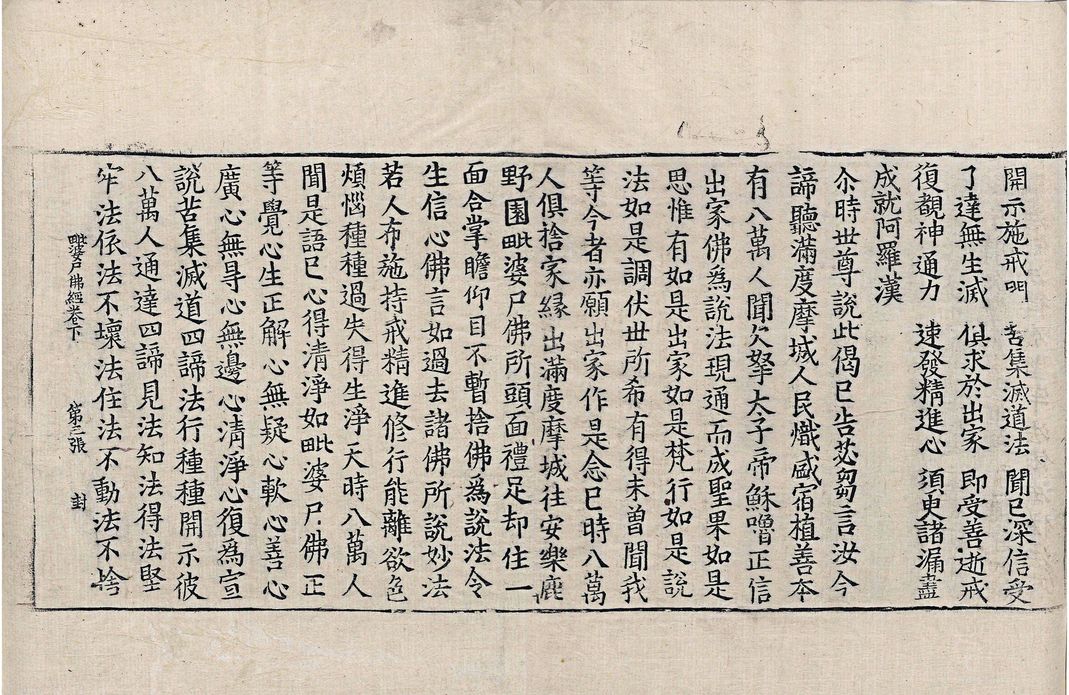 開示施戒門 苦集滅道法 聞已深信受
了達無生滅 俱求於出家 即受善逝戒
復觀神通力 速發精進心 須臾諸漏盡
成就阿羅漢
尒時世尊說此偈已告苾芻言汝今
諦聽滿度摩城人民熾盛宿植善本
有八萬人聞欠拏太子帝穌嚕正信
出家佛爲說法現通而成聖果如是
思惟有如是出家如是梵行如是說
法如是調伏世所希有得未曾聞我
等今者亦願出家作是念已時八萬
人俱捨家緣出滿度摩城往安樂鹿
野園毗婆尸佛所頭面禮足却住一
面合掌瞻仰目不暫捨佛爲說法令
生信心佛言如過去諸佛所說妙法
若人布施持戒精進修行能離欲色
煩惱種種過失得生淨天時八萬人
聞是語已心得清淨如毗婆尸佛正
等覺心生正解心無疑心軟心善心
廣心無㝵心無邊心清淨心復爲宣
說苦集滅道四諦法行種種開示彼
八萬人通達四諦見法知法得法堅
牢法依法不壞法住法不動法不捨
毗婆尸佛經卷下 第三張 封